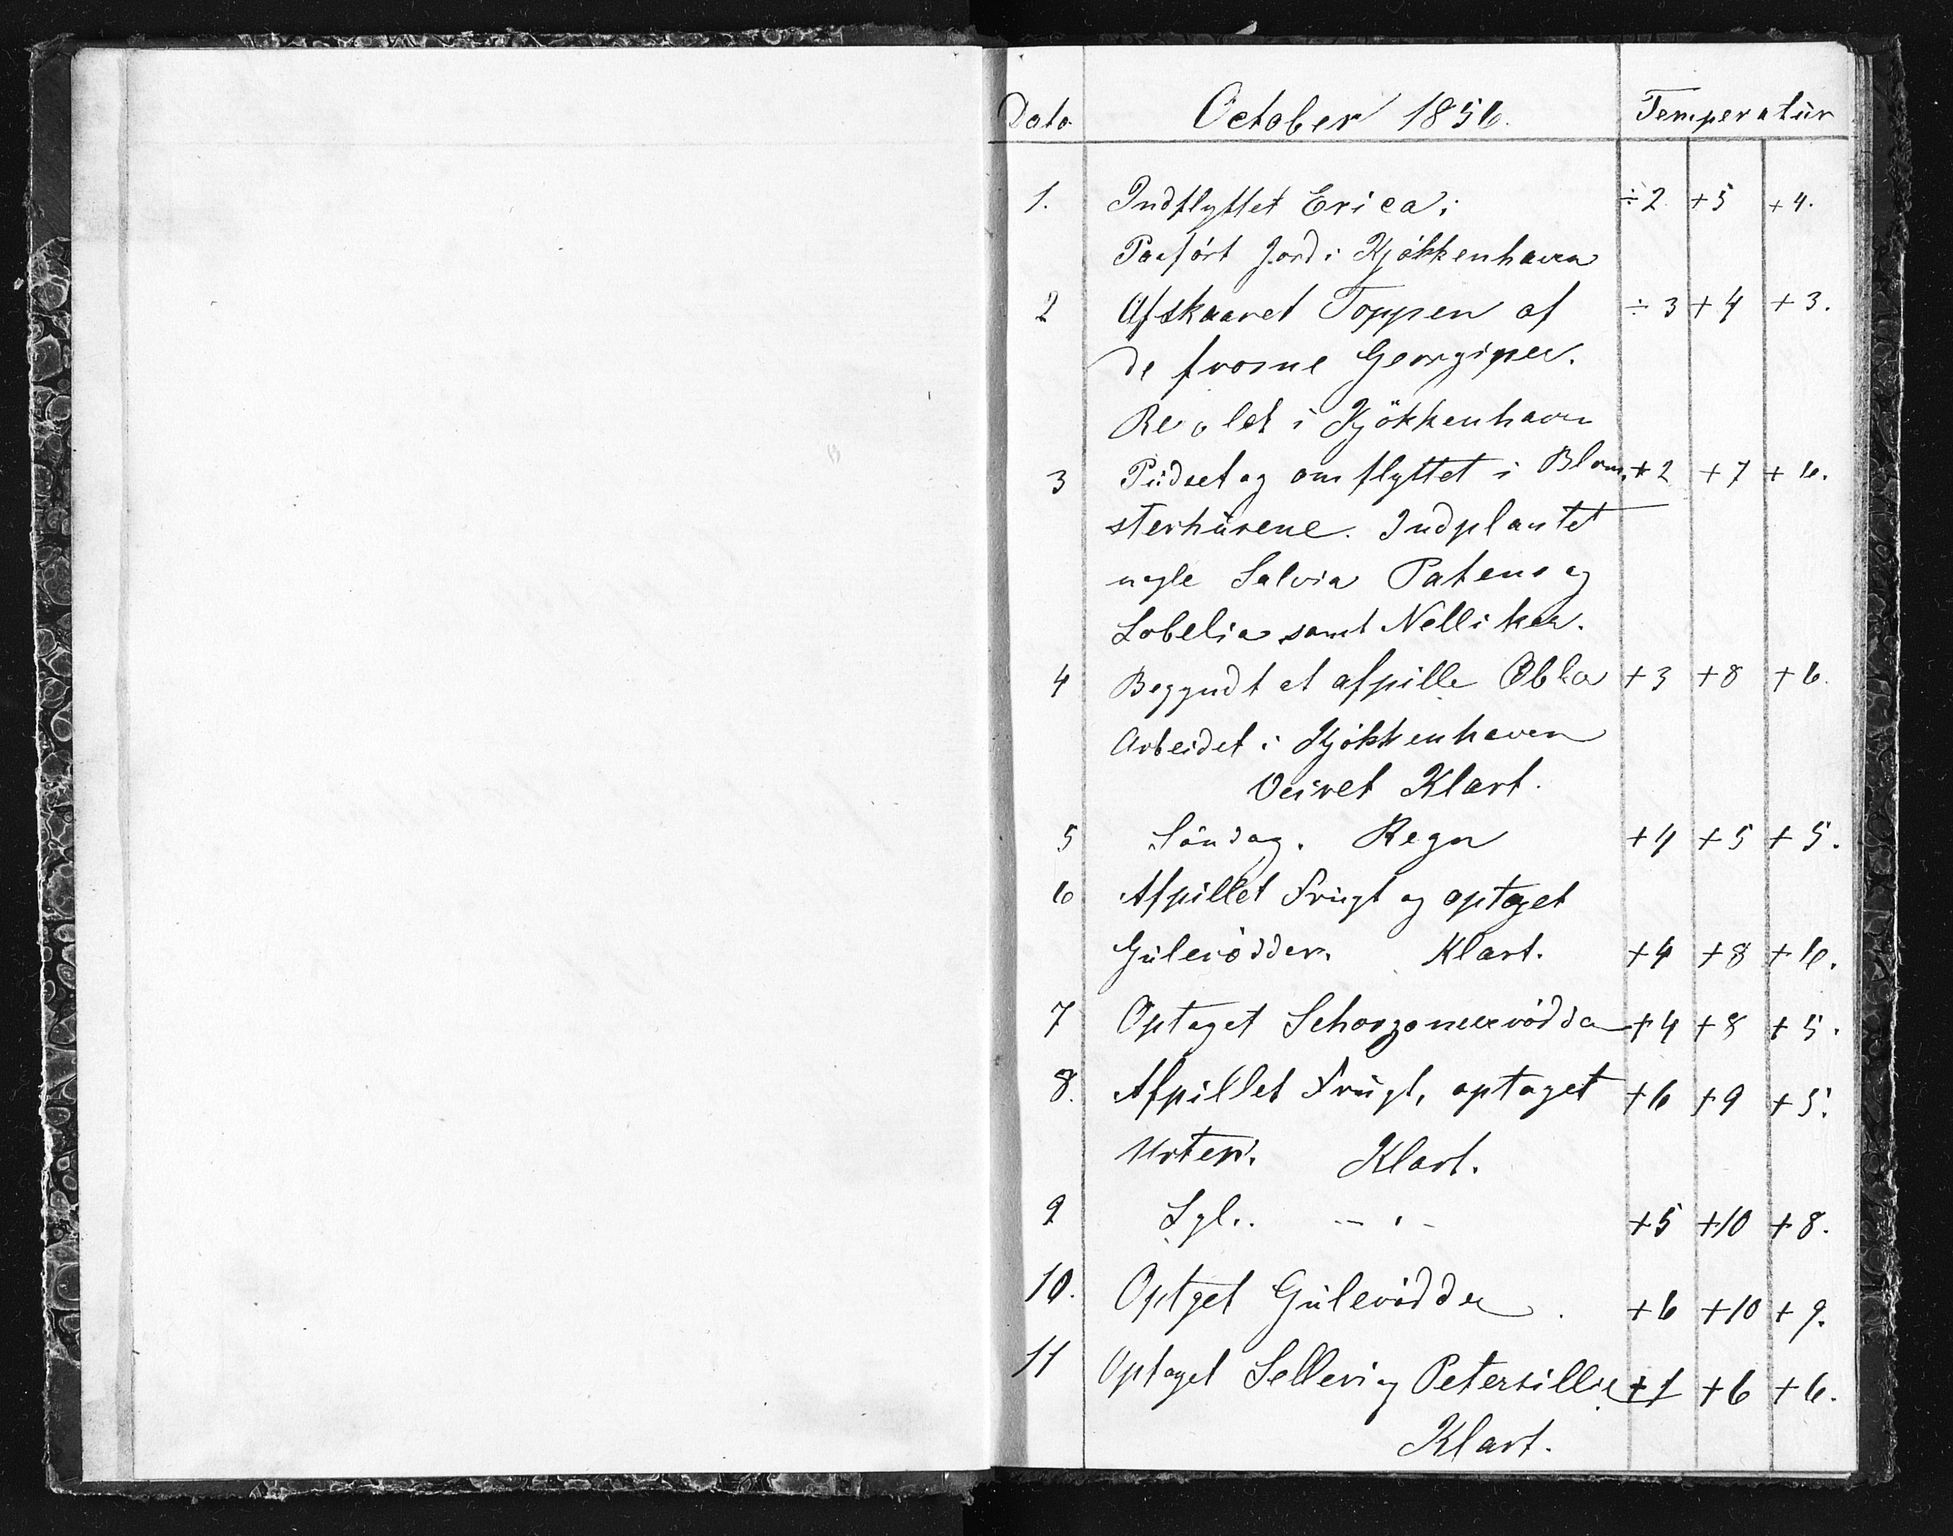 Dato October 1856. Temperatür
1. Indflyttet Erica; ÷2 +5 +4.
Paaført Jord i Kjøkkenhaven
2 Afskaaret Toppen af ÷3 +4 +3.
de frosne Georginer.
Reolet i Kjökkenhaven
3 Püdset og omflyttet i Blom- +2 +7 +6.
sterhüsene. Indplantet
nogle Salvia Patens og
Lobelia samt Nelliker.
4 Begyndt at afpille Æbler +3 +8 +6.
Arbeidet i Kjøkkenhaven
Veiret Klart.
5 Søndag. Regn +4 +5 +5.
6 Afpillet Frügt og optaget
Gülerødder. Klart. +4 +8 +6.
7 Optaget Schorzoneerrødder +4 +8 +5.
8. Afpillet Frügt, optaget +6 +9 +5.
Urter. Klart.
9 Lgl.. – " – +5 +10 +8.
10. Optget Gülerødder +6 +10 +9.
11 Optaget Selleri og Petersillie +1 +6 +6.
Klart.